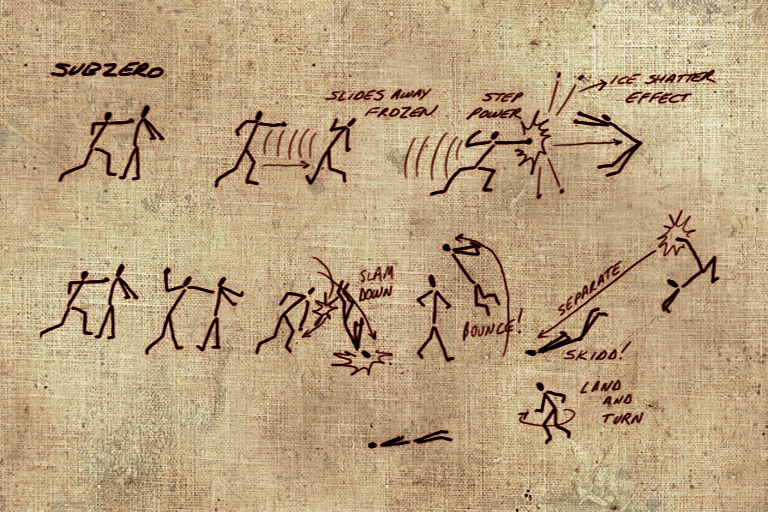 SUBZERO
SLIDES AWAY
FROZEN
STEP
POWER
ICE SHATTER
EFFECT
SLAM
DOWN
BOUNCE!
SEPARATE
SKIDD!
LAND
AND
TURN